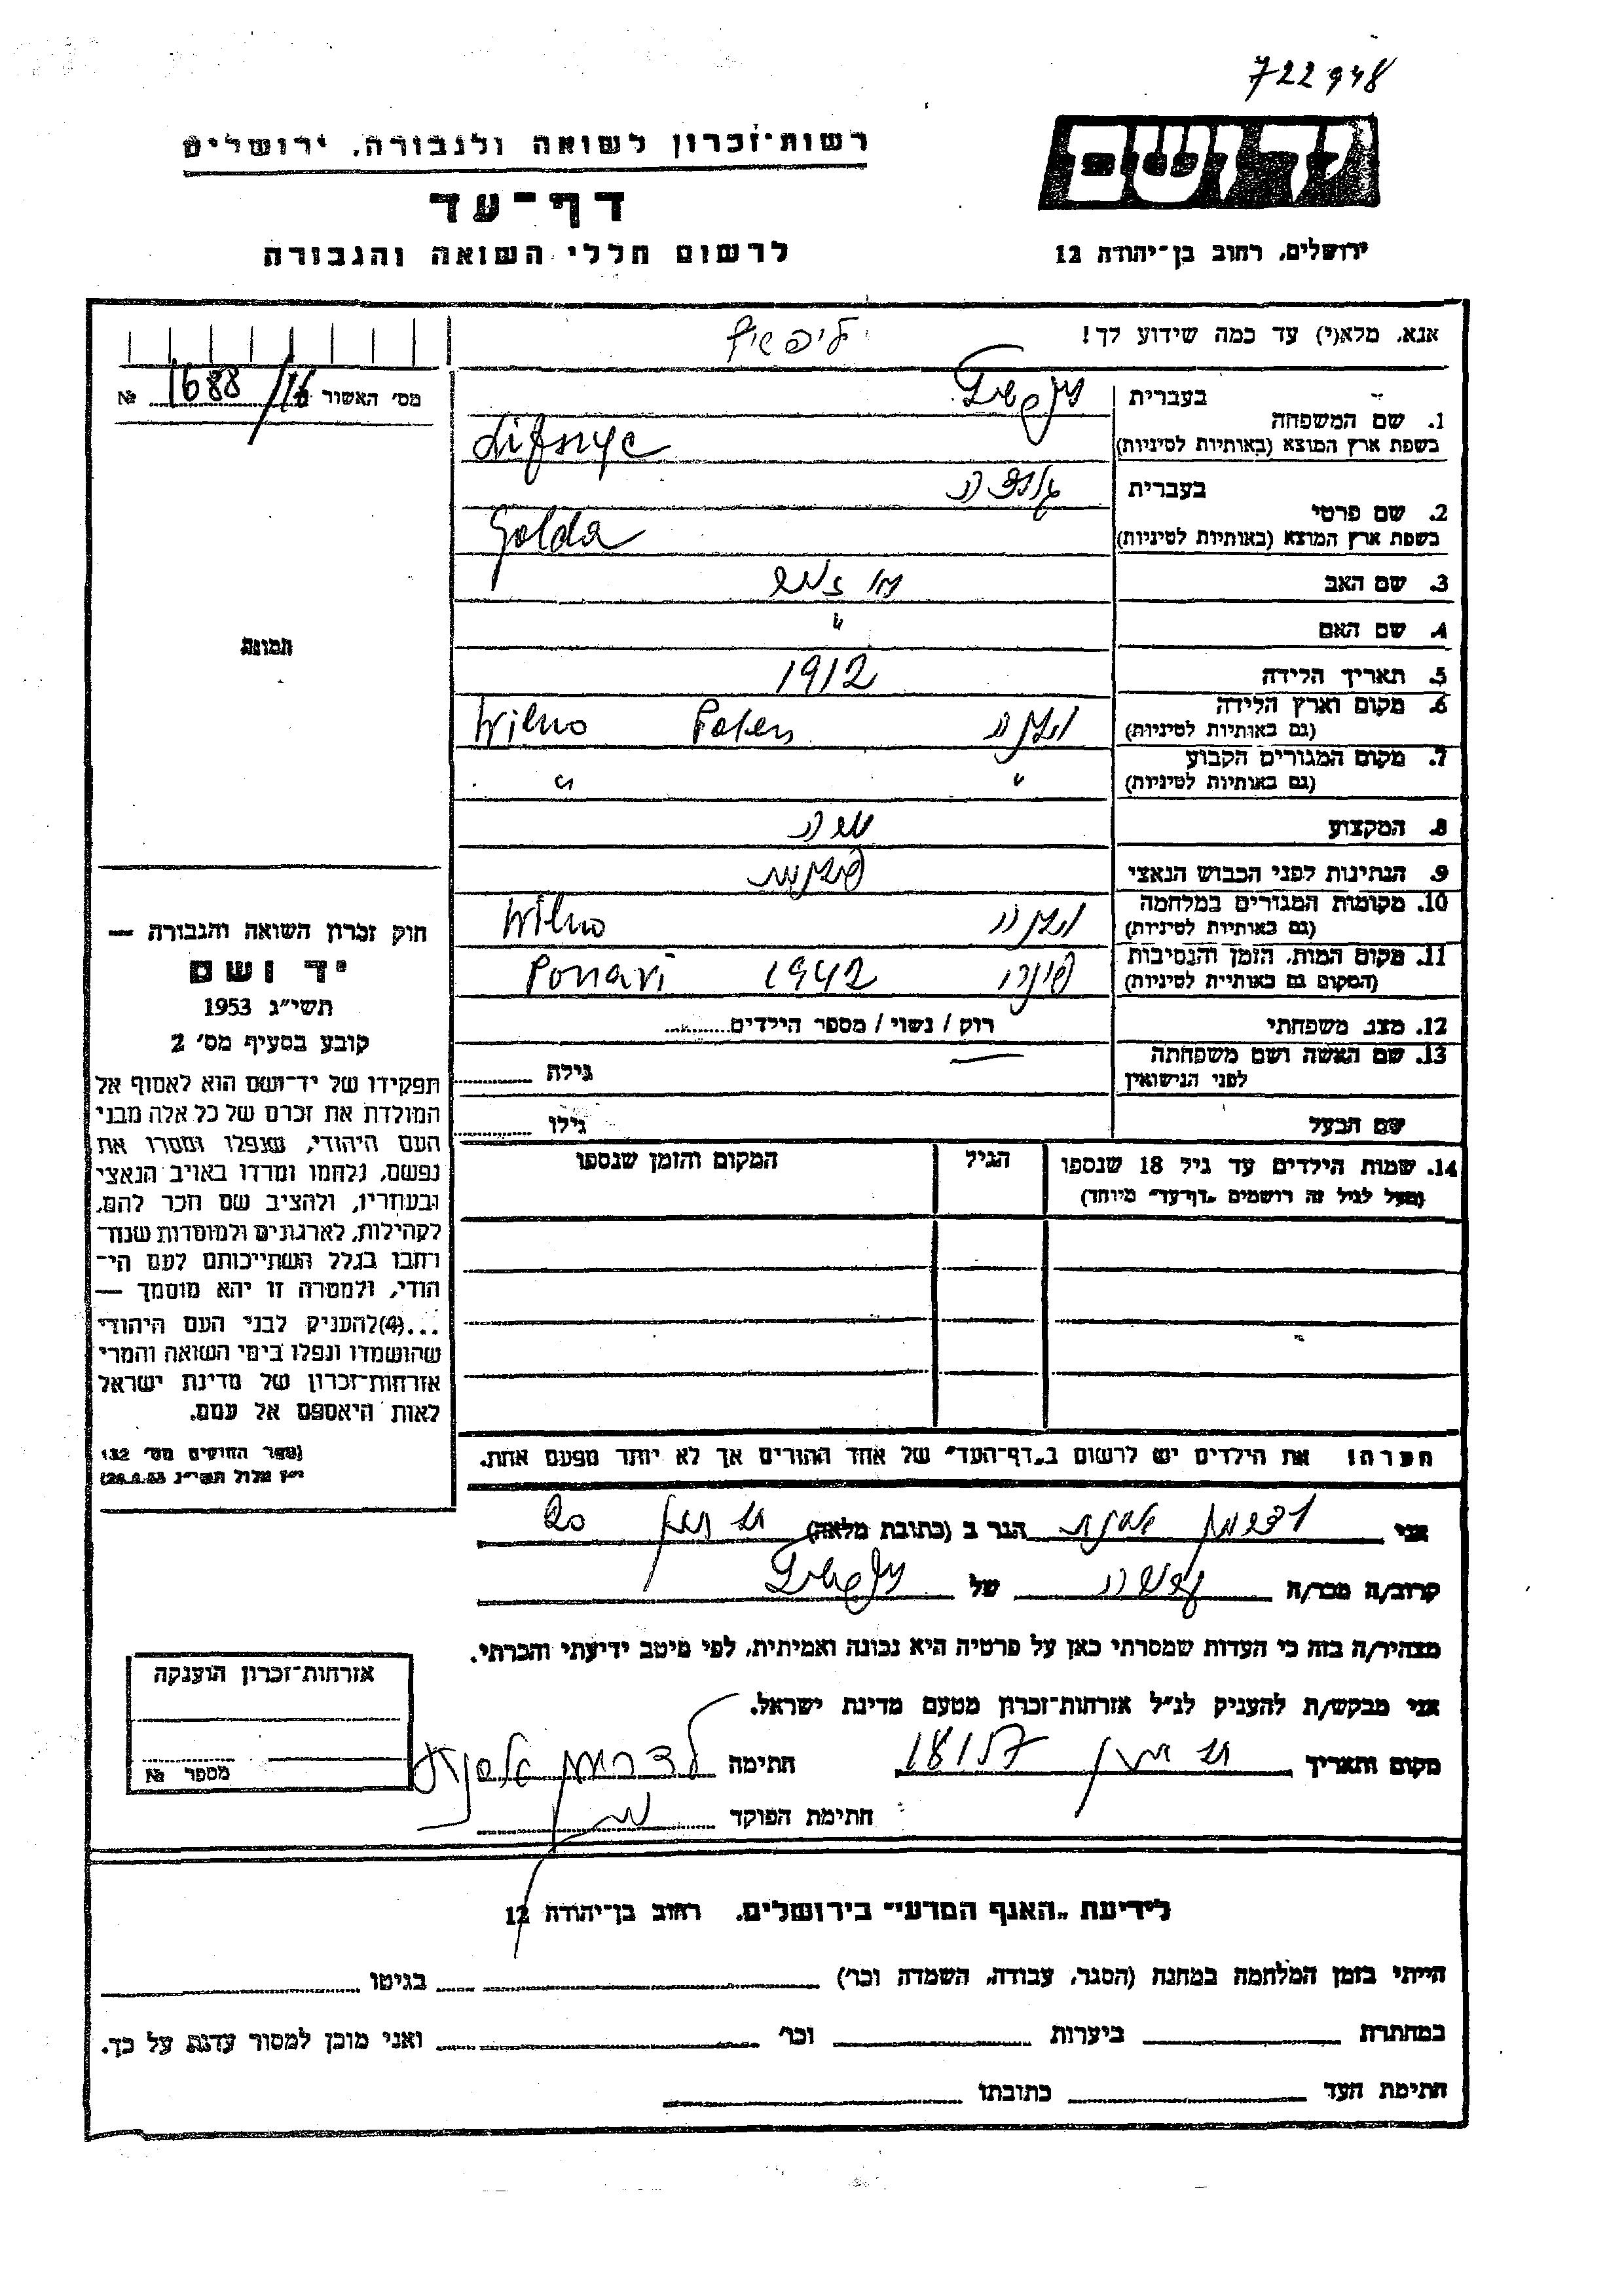 722948
רשות־זכרון לשואה ולגבורה, ירושלים
דף־עד
לרשום חללי השואה והגבורה
יד ושם
ירושלים, רחוב בן־יהודה 12
אנא, מלא(י) עד כמה שידוע לך!
ליפשיץ
מס' האשור 1688/16 №
1. שם המשפחה
בעברית
בשפת ארץ המוצא (באותיות לטיניות)
Lifszyc
2. שם פרטי
בעברית גולדה
בשפת ארץ המוצא (באותיות לטיניות) Golda
3. שם האב
4. שם האם "
5. תאריך הלידה 1912
6. מקום וארץ הלידה
(גם באותיות לטיניות)
וילנה Polen Wilno
7. מקום המגורים הקבוע
(גם באותיות לטיניות)
" "
8. המקצוע
9. הנתינות לפני הכבוש הנאצי
10. מקומות המגורים במלחמה
(גם באותיות לטיניות)
וילנה Wilno
11. מקום המות, הזמן והנסיבות
(המקום גם באותיות לטיניות)
פונרי 1942 Ponari
12. מצב משפחתי רוק / נשוי / מספר הילדים
13. שם האשה ושם משפחתה
לפני הנישואין
גילה
שם הבעל גילו
14. שמות הילדים עד גיל 18 שנספו
(מעל לגיל זה רושמים "דף־עד" מיוחד)
הגיל
המקום והזמן שנספו
תמונה
חוק זכרון השואה והגבורה —
יד ושם
תשי"ג 1953
קובע בסעיף מס' 2
תפקידו של יד־ושם הוא לאסוף אל
המולדת את זכרם של כל אלה מבני
העם היהודי, שנפלו ומסרו את
נפשם, נלחמו ומרדו באויב הנאצי
ובעוזריו, ולהציב שם וזכר להם,
לקהילות, לארגונים ולמוסדות שנח־
רחבו בגלל השתייכותם לעם הי־
הודי, ולמטרה זו יהא מוסמך —
...(4) להעניק לבני העם היהודי
שהושמדו ונפלו בימי השואה והמרי
אזרחות־זכרון של מדינת ישראל
לאות היאספם אל עמם.
(ספר החוקים מס' 132
י"ז אלול תשי"ג 28.8.53)
הערה! את הילדים יש לרשום ב"דף־העד" של אחד ההורים אך לא יותר מפעם אחת.
אני הגר ב (כתובת מלאה) 20
קרוב/ה מכר/ה של
מצהיר/ה בזה כי העדות שמסרתי כאן על פרטיה היא נכונה ואמיתית, לפי מיטב ידיעתי והכרתי.
אני מבקש/ת להעניק לנ"ל אזרחות־זכרון מטעם מדינת ישראל.
מקום ותאריך חתימה
חתימת הפוקד
אזרחות־זכרון הוענקה
מספר №
לידיעת "האגף המדעי" בירושלים, רחוב בן־יהודה 12
הייתי בזמן המלחמה במחנה (הסגר, עבודה, השמדה וכר') בגיטו
במחתרת ביערות וכר' ואני מוכן למסור עדות על כך.
חתימת העד כתובתו